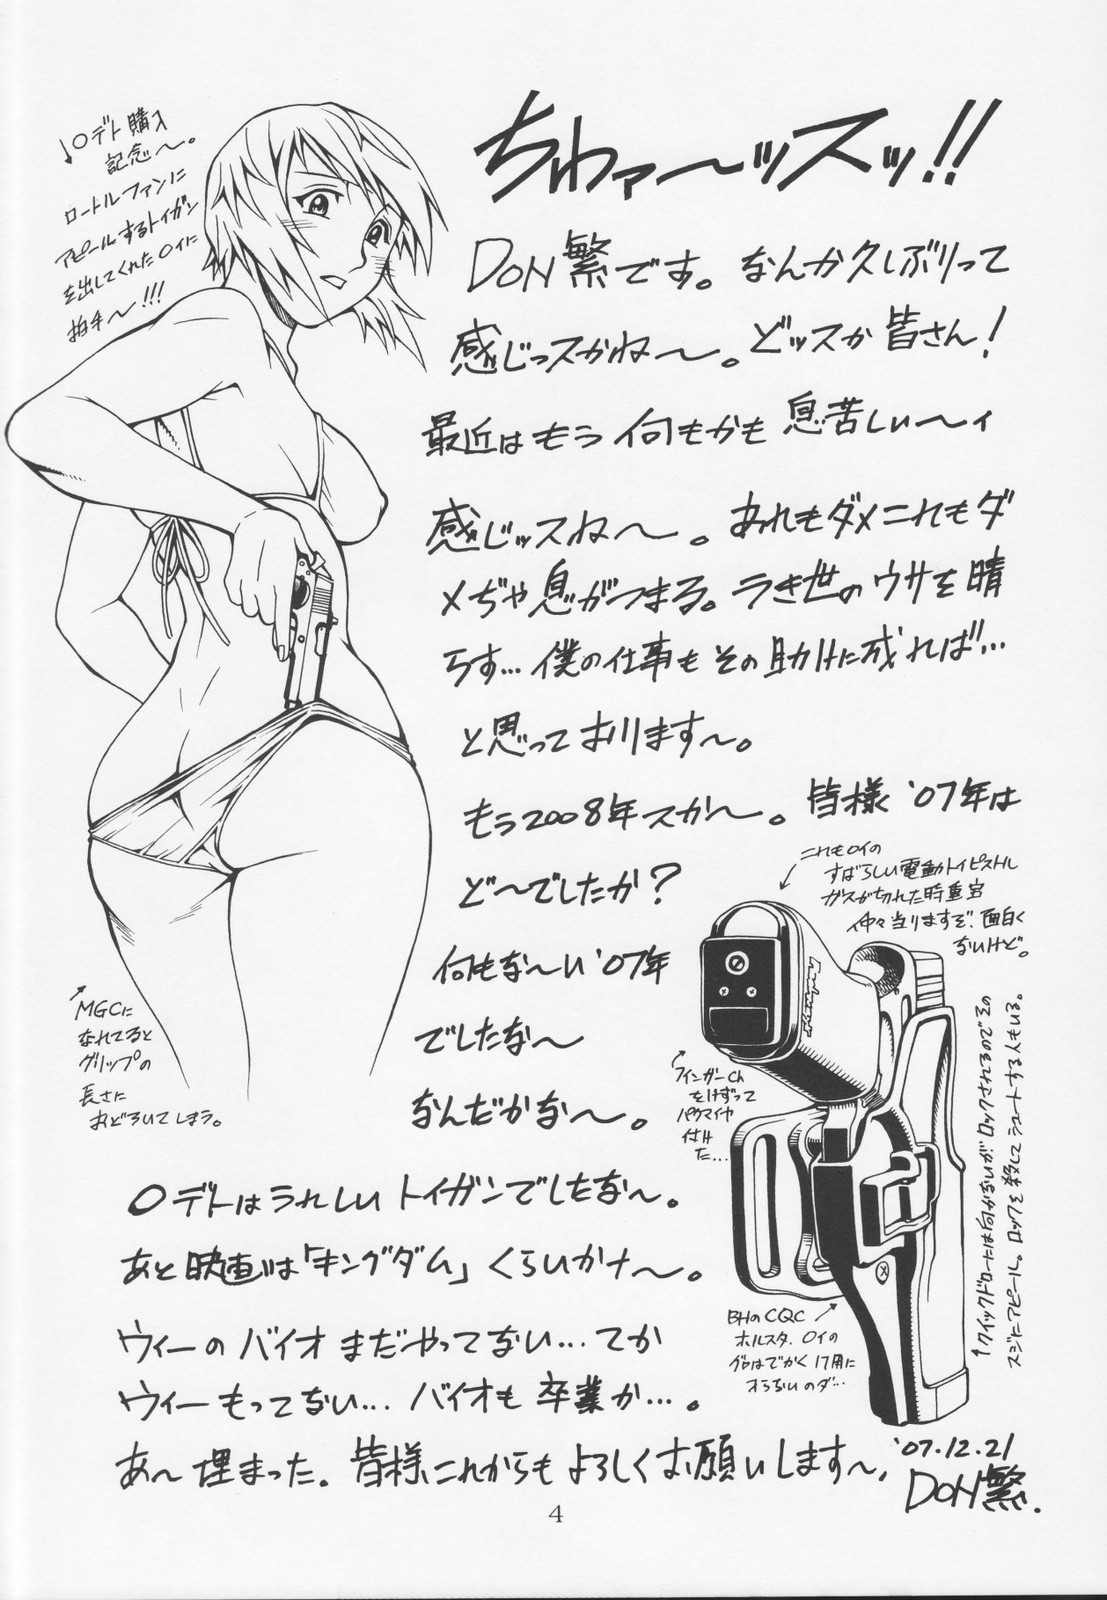 ちわァ〜ッスッ!!
DON繁です。なんか久しぶりって
感じっスかね〜。どッスか皆さん!
最近はもう何もかも息苦しぃ〜ィ
感じッスね〜。あれもダメこれもダ
メぢゃ息がつまる。うき世のウサを晴
らす…僕の仕事もその助けに成れば…
と思っております〜。
もう2008年スか〜。皆様'07年は
ど〜でしたか?
何もな〜い'07年
でしたな〜
なんだかな〜。
〇デトはうれしいトイガンでしたな〜。
あと映画は「キングダム」くらいかナ〜。
ウィーのバイオまだやってない…てか
ウィーもってない…バイオも卒業か…。
あ〜埋まった。皆様これからもよろしくお願いします〜。
'07.12.21
DON繁.
↓〇デト購入
記念〜。
ロートルファンに
アピールするトイガン
を出してくれた〇イに
拍手〜!!!
↗
MGCに
なれてると
グリップの
長さに
おどろいてしまう。
これも〇イの
すばらしい電動トイピストル
ガスが切れた時重宝
仲々当りますぞ、面白く
ないけど。
フィンガーch
をけずって
パクマイヤ
付けた…
BHのCQC
ホルスタ、〇イの
グロはでかく17用に
オらないのダ…
↑クイックドローには向かないがロックされるのでその
スジにアピール。ロックを殺してシュートする人もいる。
4